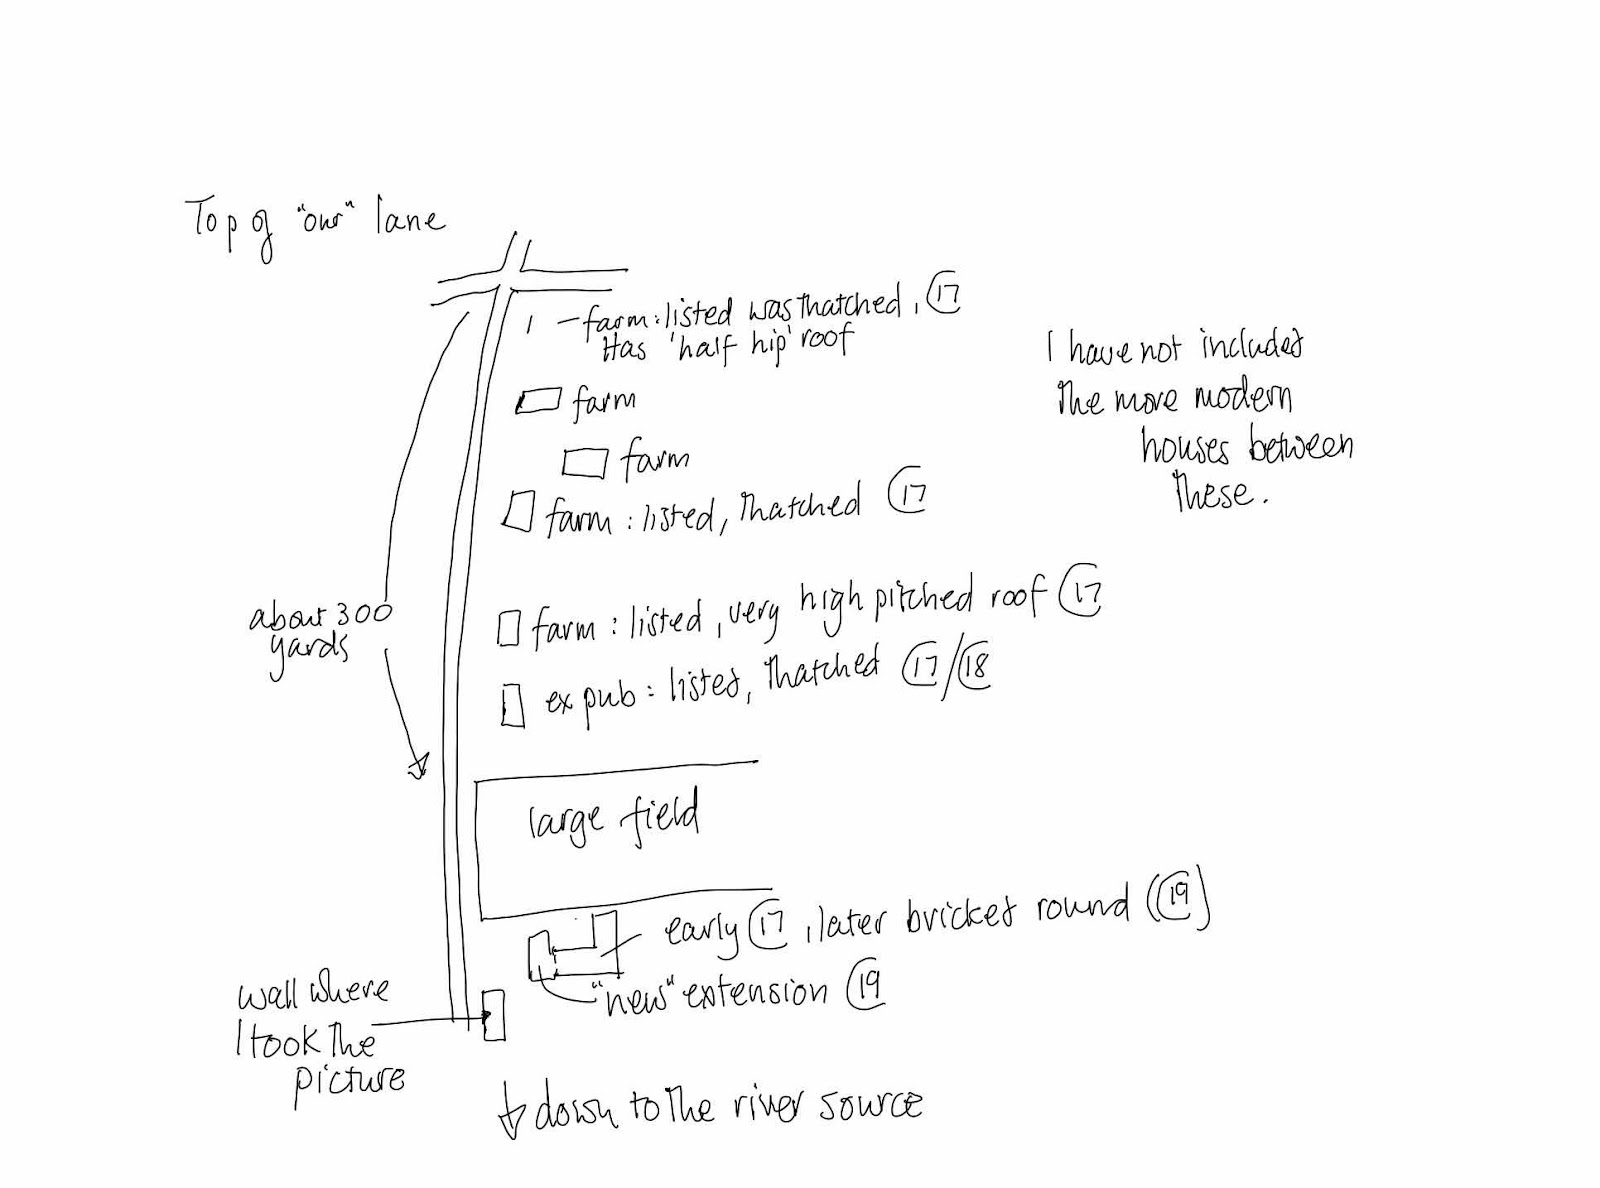 Top of "our" lane
– farm: listed was thatched, 17
Has 'half hip' roof
farm
farm
farm: listed, thatched 17
farm: listed, very high pitched roof 17
ex pub: listed, thatched 17/18
I have not included
the more modern
houses between
these.
about 300
yards
large field
early 17, later bricked round (19)
"new" extension 19
wall where
I took the
picture
down to the river source